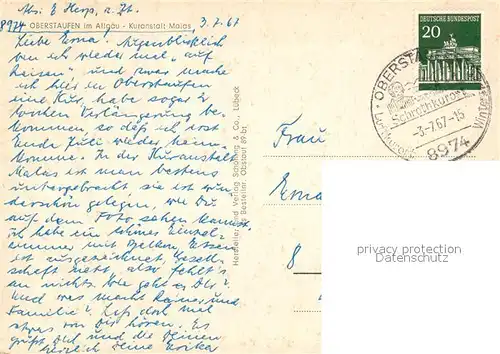 Abs. E. Herp, z. Zt.
8974 OBERSTAUFEN im Allgäu - Kuranstalt Malas 3.7.67
Liebe Erna! Augenblicklich
bin ich wieder mal „auf
Reisen" und zwar mache
ich hier in Oberstaufen
eine Kur, habe sogar 2
Wochen Verlängerung be-
kommen, so daß ich erst
Ende Juli wieder heim
komme. In der Kuranstalt
Malas ist man bestens
untergebracht sie ist wun
derschön gelegen, wie Du
auf dem Foto sehen kannst.
Ich habe ein schönes Einzel-
zimmer mit Balkon, Essen
ist ausgezeichnet, Gesell-
schaft nett, also fehlt's
an nichts. Wie geht es Dir?
Und was macht Heinz und
Familie? Laß doch mal
etwas von Dir hören. Es
grüßt Dich und die Deinen
herzlich Deine Erika
Hersteller und Verlag Schöning & Co., Lübeck
Bestellnr. Obstauf 89 bt
Frau
Erna
8
DEUTSCHE BUNDESPOST
20
OBERST
Schrothkurort
-3.-7.67-15
8974
privacy protection